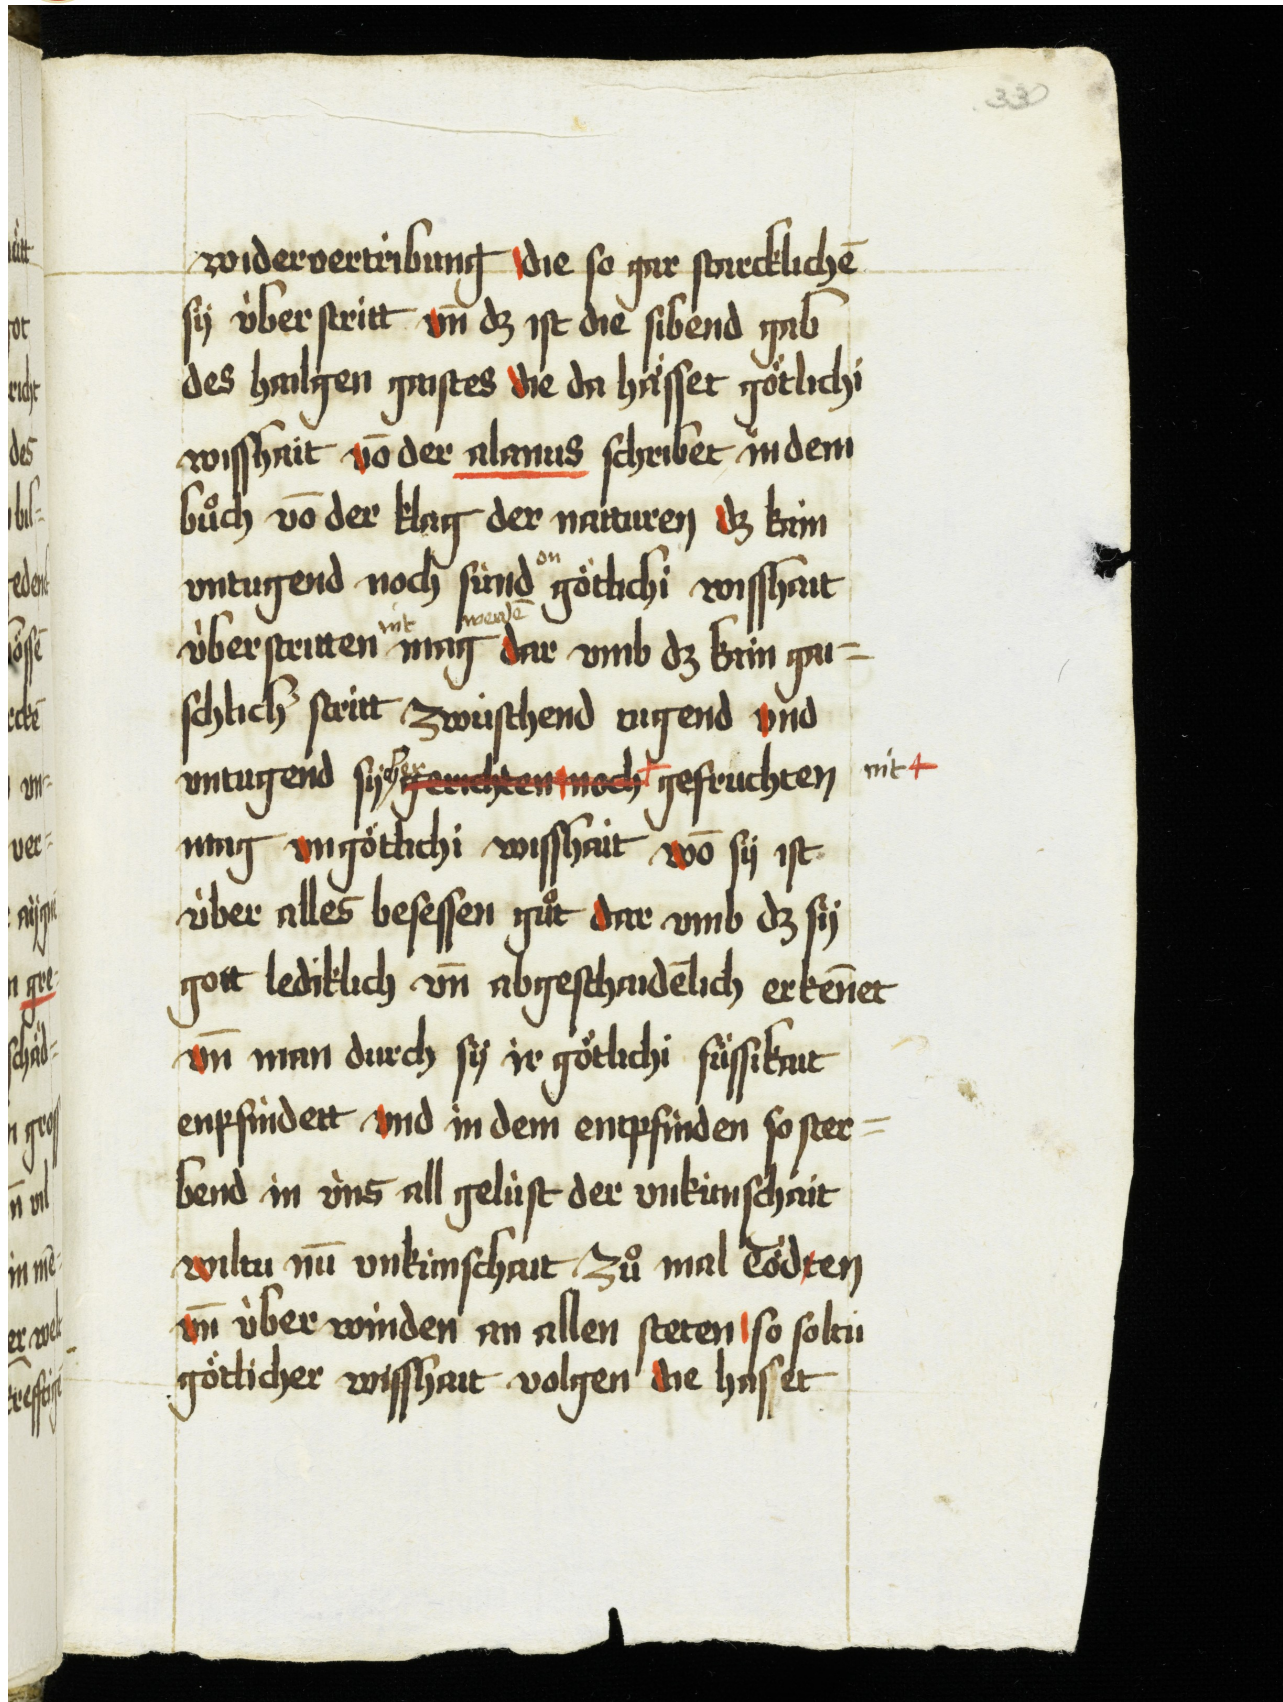 330
widervertribung die so gar starcklichē
sÿ über stritt vn̄ dꝫ ist die sibend gab
des hailgen gaistes die da häisset götlichi
wisshait vō der alanus schribet in dem
bůch vō der klag der natturen dꝫ kain
vntugend noch sünd on götlichi wisshait
überstritten nit mag werdē dar vmb dꝫ kain gai=
schlichͤ stritt zwüschend tugend vnd
vntugend sÿ gerichten noch gefruchten nit +
mag on götlichi wisshait wō sÿ ist
über alles besessen gůt dar vmb dꝫ sÿ
gott lediklich vn̄ abgeschaidēlich erkēnet
vn̄ man durch sÿ ir götlichi süssikait
enpfindett vnd in dem entpfinden so ster=
bend in üns all gelüst der vnkünschait
wiltu nū vnkünschait zů mal Tödten
vn̄ über winden an allen steten so soltu
götlicher wisshait volgen die haisset